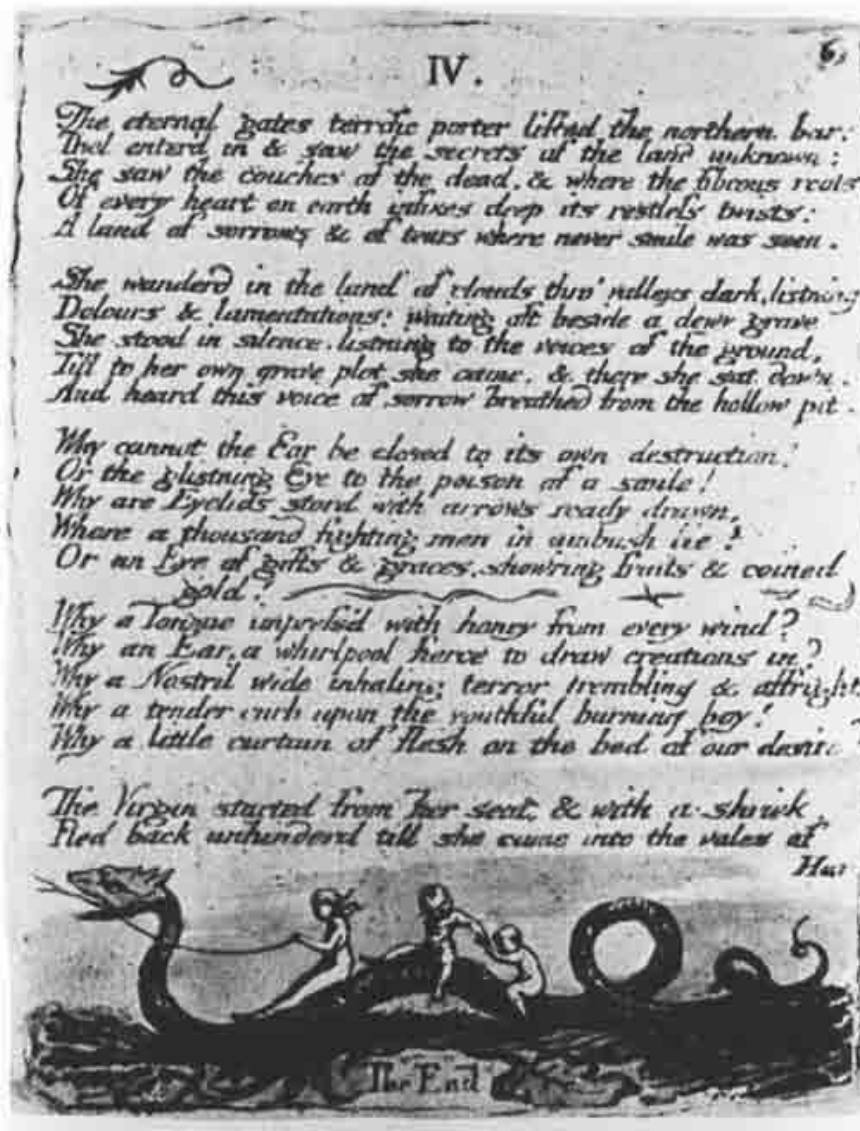 IV.
6
The eternal gates terrific porter lifted the northern bar:
Thel enterd in & saw the secrets of the land unknown;
She saw the couches of the dead, & where the fibrous roots
Of every heart on earth infixes deep its restless twists:
A land of sorrows & of tears where never smile was seen.
She wanderd in the land of clouds thro' valleys dark, listning
Dolours & lamentations: waiting oft beside a dewy grave
She stood in silence, listning to the voices of the ground,
Till to her own grave plot she came, & there she sat down.
And heard this voice of sorrow breathed from the hollow pit.
Why cannot the Ear be closed to its own destruction?
Or the glistning Eye to the poison of a smile!
Why are Eyelids stord with arrows ready drawn,
Where a thousand fighting men in ambush lie?
Or an Eye of gifts & graces, showring fruits & coined
gold?
Why a Tongue impress'd with honey from every wind?
Why an Ear, a whirlpool fierce to draw creations in?
Why a Nostril wide inhaling terror trembling & affright
Why a tender curb upon the youthful burning boy!
Why a little curtain of flesh on the bed of our desire?
The Virgin started from her seat, & with a shriek,
Fled back unhinderd till she came into the vales of
Har
The End